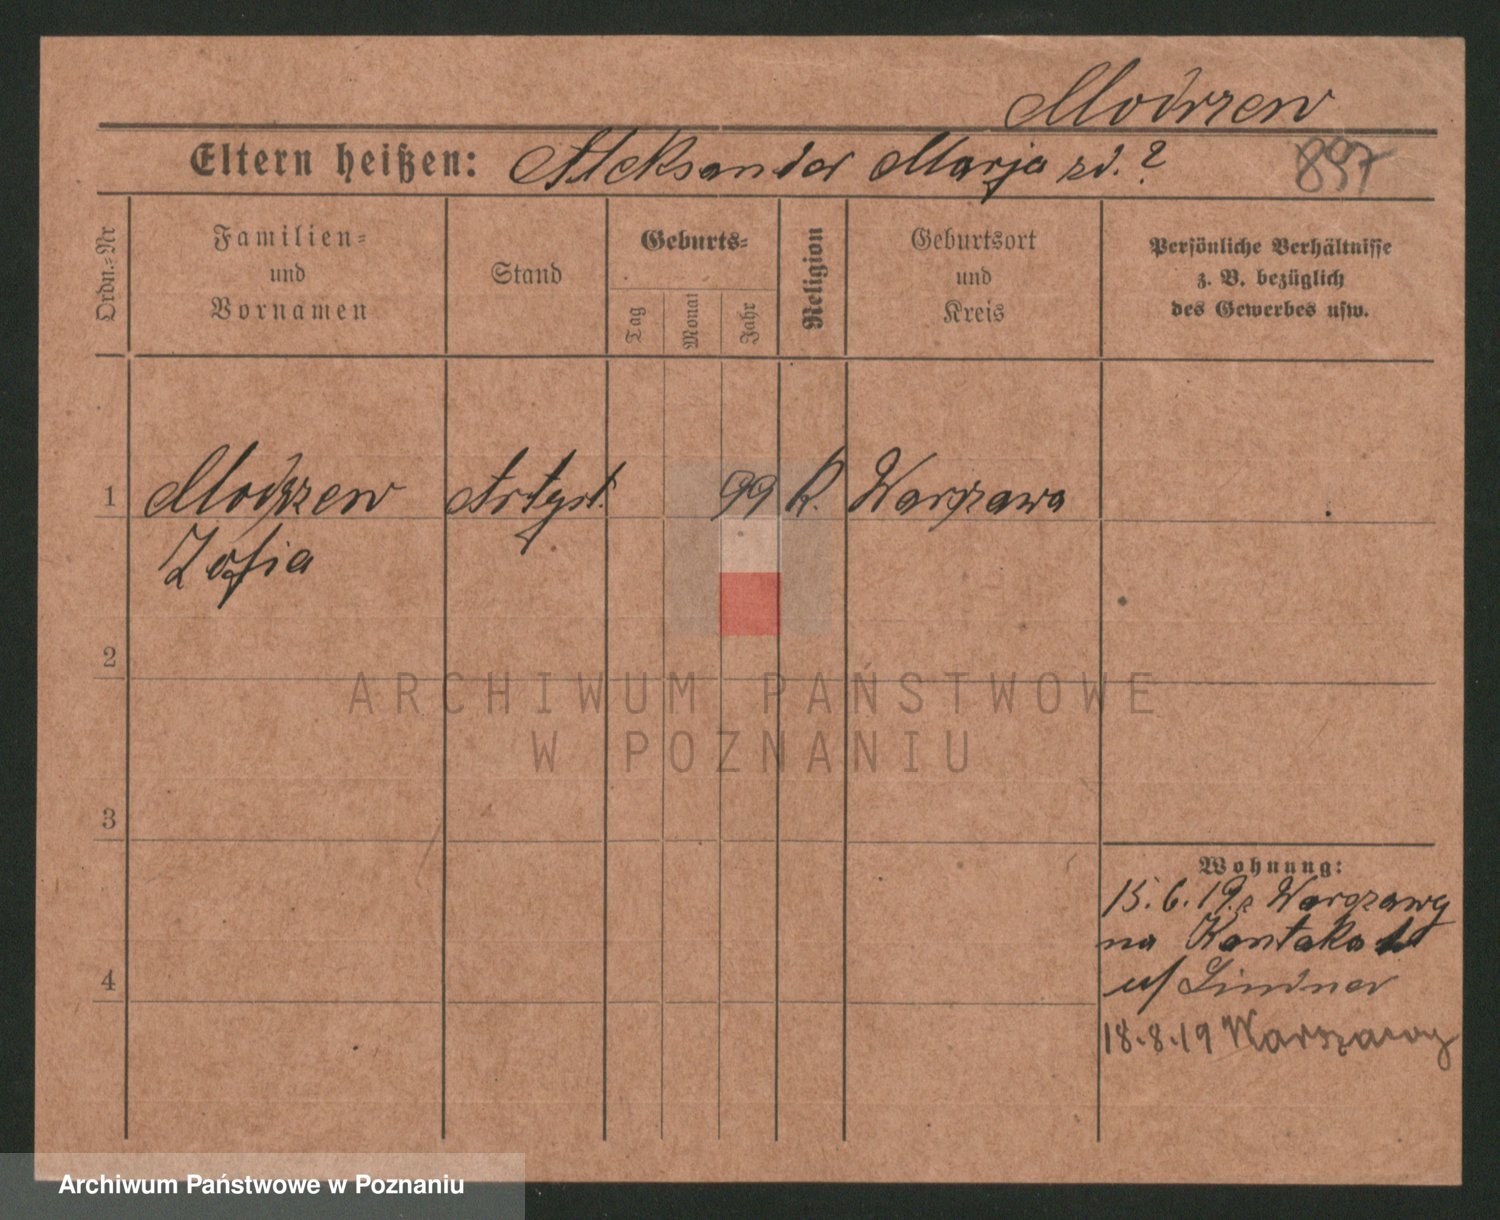 Modrzew
Eltern heißen: Aleksander Marja zd. ?
897
Ordn.-Nr
Familien-
und
Vornamen
Stand
Geburts-
Tag
Monat
Jahr
Religion
Geburtsort
und
Kreis
Persönliche Verhältnisse
z. B. bezüglich
des Gewerbes usw.
1
Modrzew Artyst. 99 R. Warszawa
Zofia
2
ARCHIWUM PAŃSTWOWE
W POZNANIU
3
Wohnung:
15.6.19. z Warszawy
na
4
u/ Lindner
18.8.19 Warszawy
Archiwum Państwowe w Poznaniu